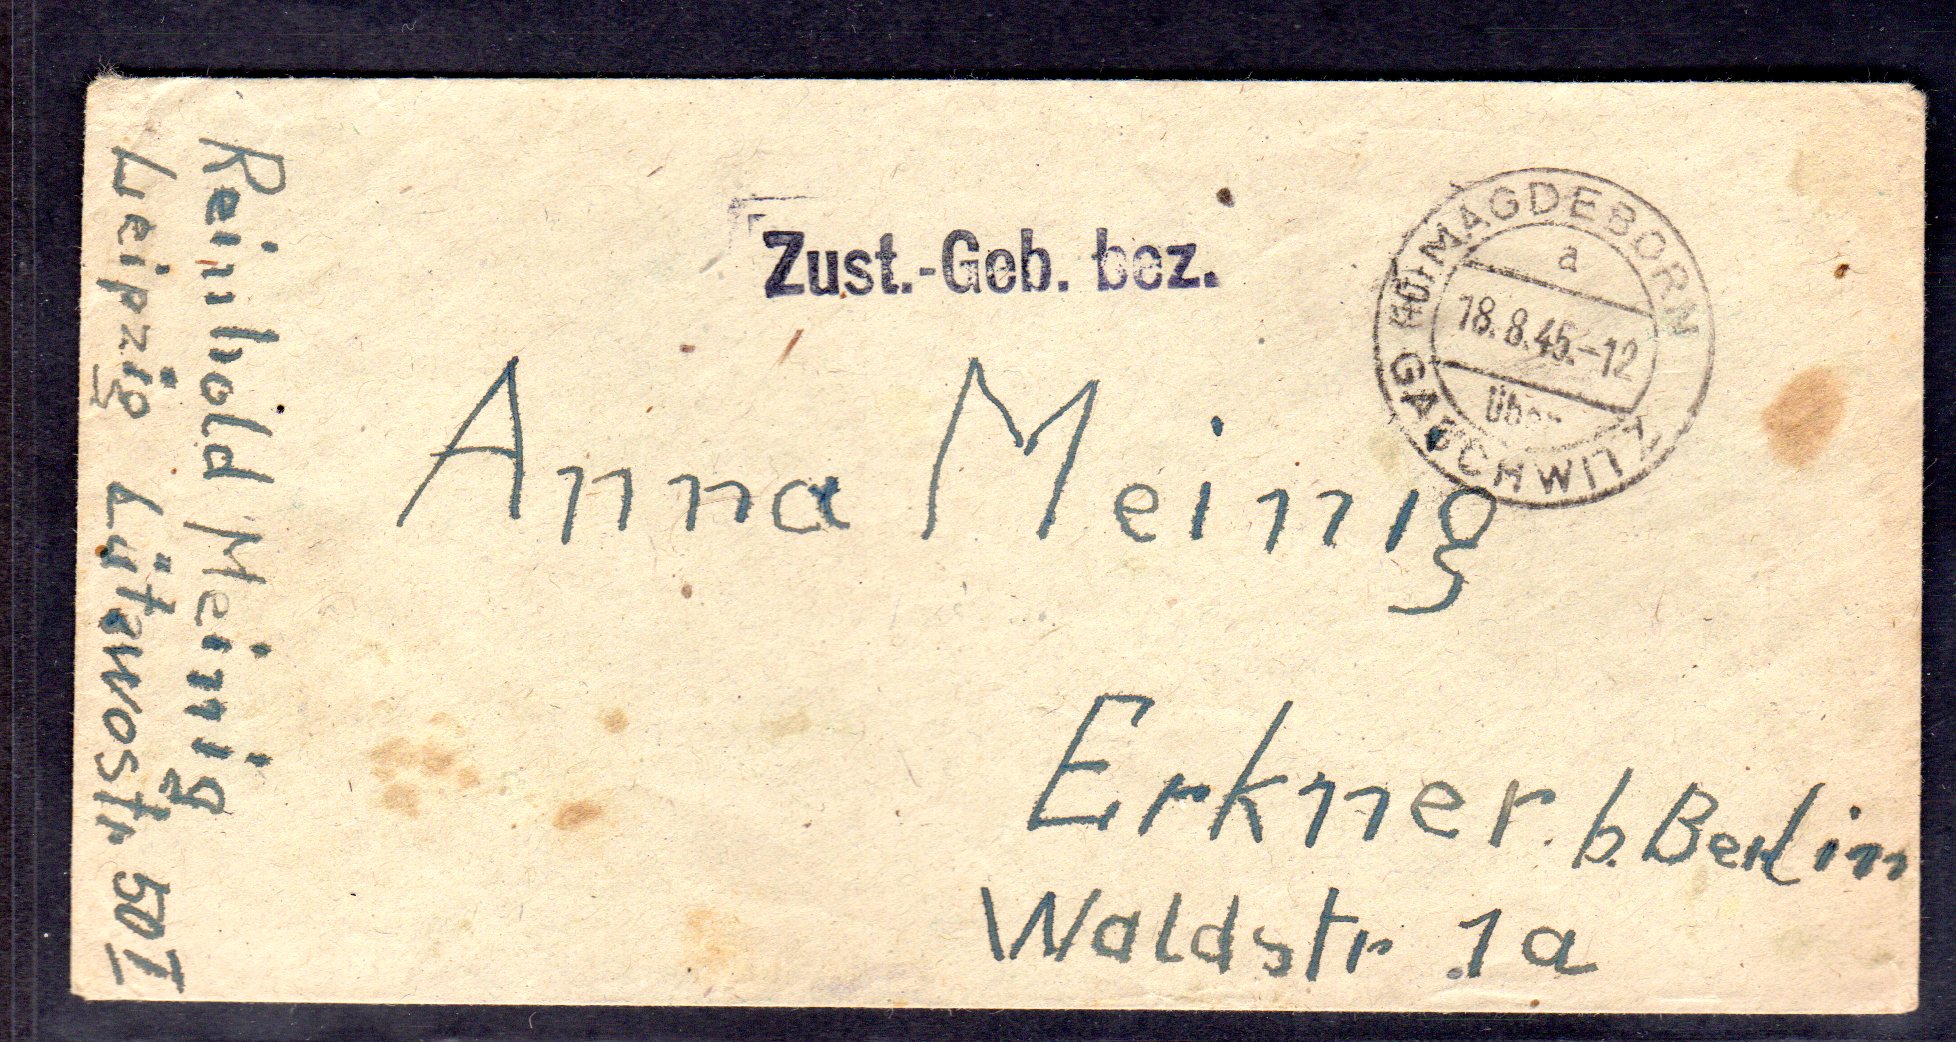 Reinhold Meinig
Leipzig Lützowstr 50 I
Zust.-Geb. bez.
MAGDEBORN
a
18.8.45.-12
über
GASCHWITZ
Anna Meinig
Erkner b. Berlin
Waldstr. 1a